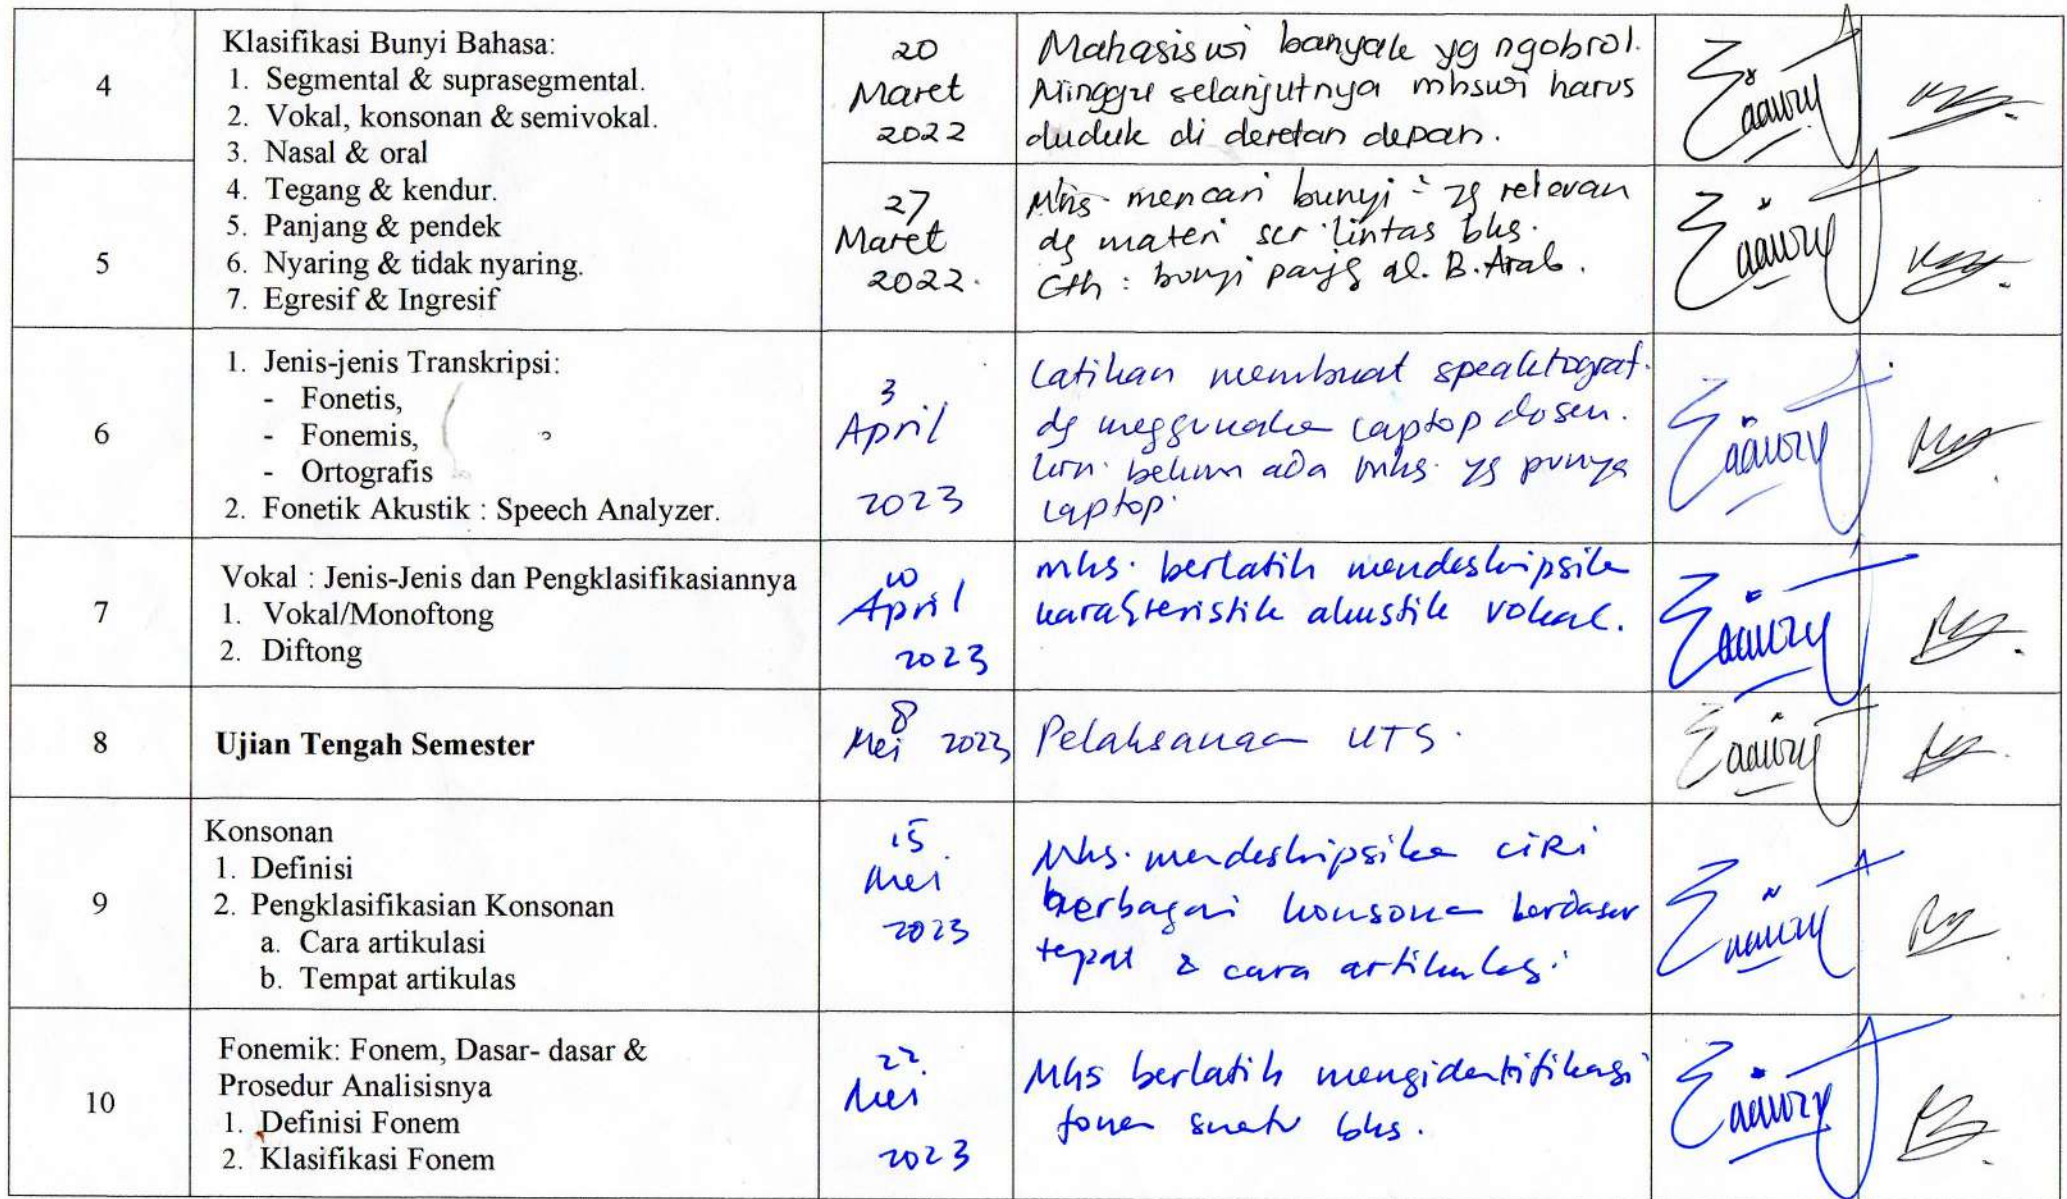 4
Klasifikasi Bunyi Bahasa:
1. Segmental & suprasegmental.
2. Vokal, konsonan & semivokal.
3. Nasal & oral
4. Tegang & kendur.
5. Panjang & pendek
6. Nyaring & tidak nyaring.
7. Egresif & Ingresif
20
Maret
2022
Mahasiswi banyak yg ngobrol.
Minggu selanjutnya mhswi harus
duduk di deretan depan.
5
27
Maret
2022.
Mhs mencari bunyi yg relevan
dg materi scr lintas bhs.
Cth: bunyi panjg dl. B. Arab.
6
1. Jenis-jenis Transkripsi:
- Fonetis,
- Fonemis,
- Ortografis
2. Fonetik Akustik : Speech Analyzer.
3
April
2023
Latihan membuat
dg laptop dosen.
krn. belum ada mhs. yg punya
laptop.
7
Vokal : Jenis-Jenis dan Pengklasifikasiannya
1. Vokal/Monoftong
2. Diftong
10
April
2023
mhs. berlatih
akustik vokal.
8
Ujian Tengah Semester
8
Mei 2023
UTS.
9
Konsonan
1. Definisi
2. Pengklasifikasian Konsonan
a. Cara artikulasi
b. Tempat artikulas
15
Mei
2023
Mhs. ciri
berbagai
& cara artikulasi.
10
Fonemik: Fonem, Dasar- dasar &
Prosedur Analisisnya
1. Definisi Fonem
2. Klasifikasi Fonem
22
Mei
2023
Mhs berlatih mengidentifikasi
fonem suatu bhs.